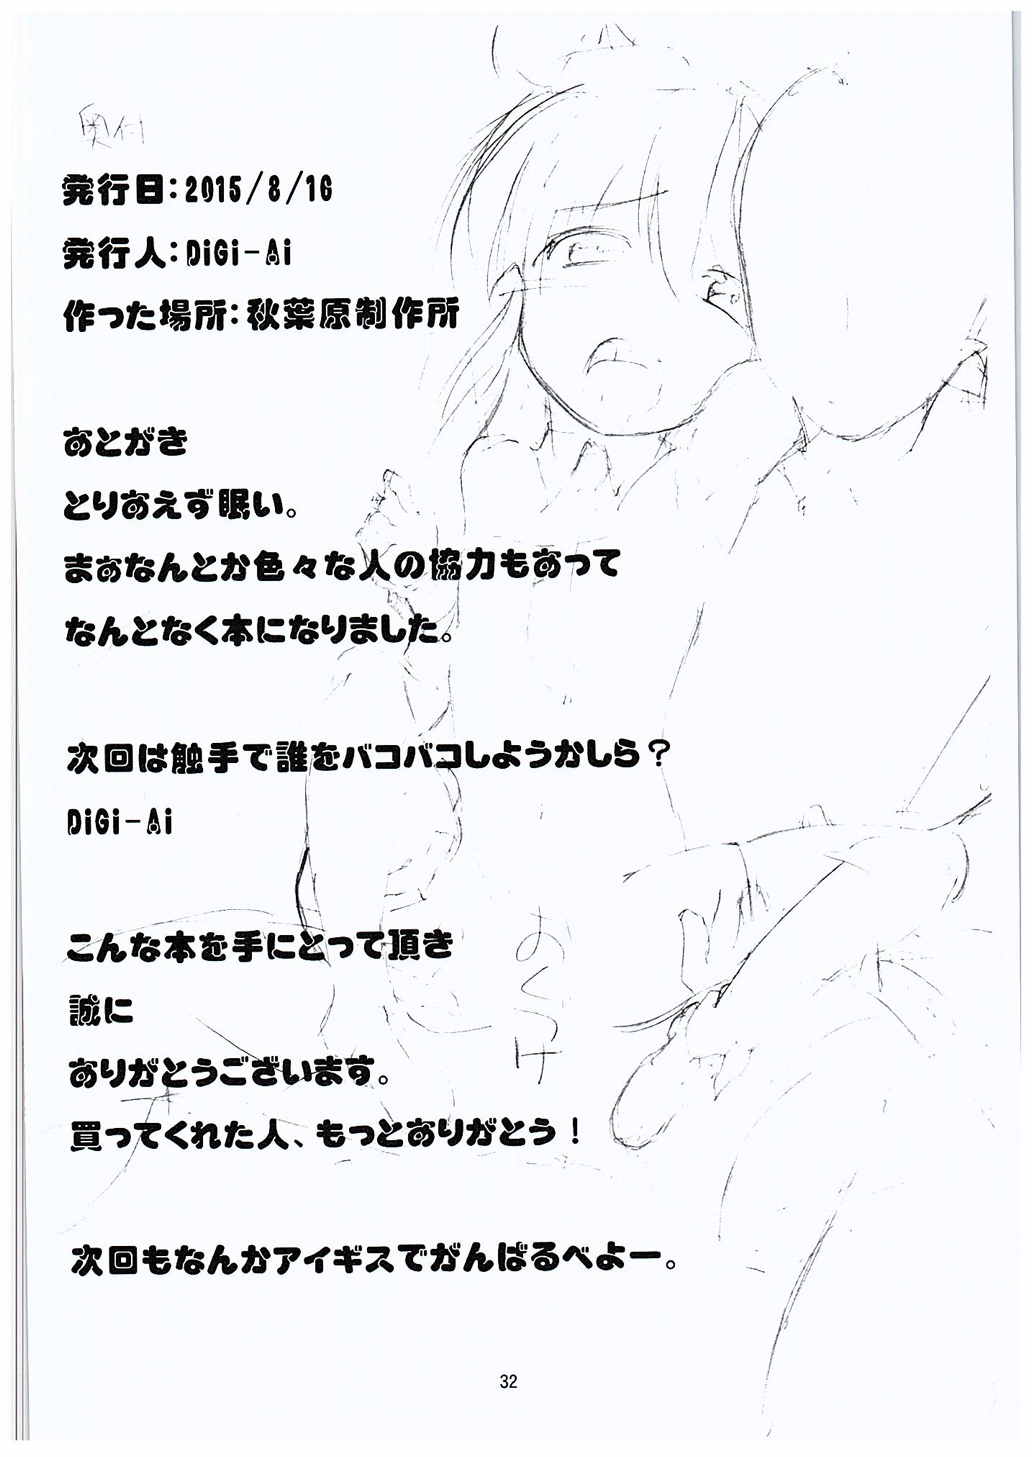 奥付
発行日：2015/8/16
発行人：DiGi-Ai
作った場所：秋葉原制作所
あとがき
とりあえず眠い。
まぁなんとか色々な人の協力もあって
なんとなく本になりました。
次回は触手で誰をバコバコしようかしら？
DiGi-Ai
こんな本を手にとって頂き
誠に
ありがとうございます。
買ってくれた人、もっとありがとう！
次回もなんかアイギスでがんばるべよー。
おくづけ
32